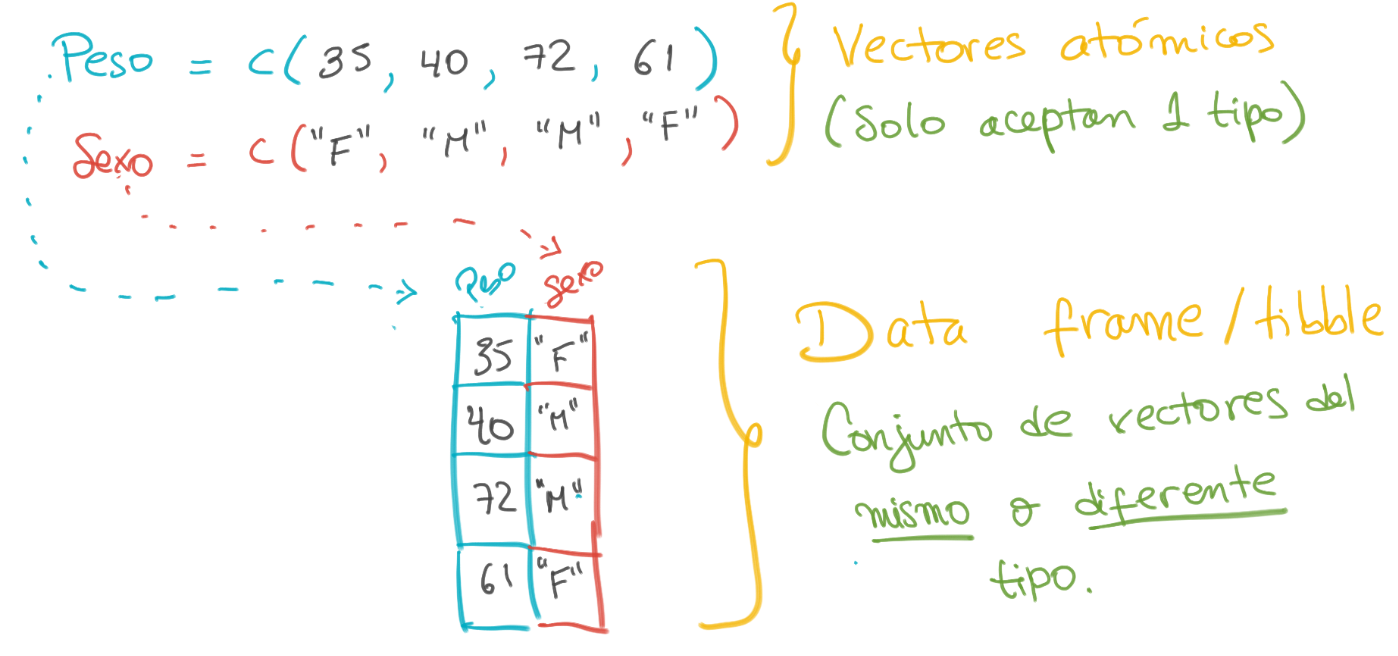 Peso = c(35, 40, 72, 61)
Sexo = c("F", "M", "M", "F")
Vectores atómicos
(Solo aceptan 1 tipo)
Peso Sexo
35 "F"
40 "M"
72 "M"
61 "F"
Data frame/tibble
Conjunto de vectores del
mismo o diferente
tipo.